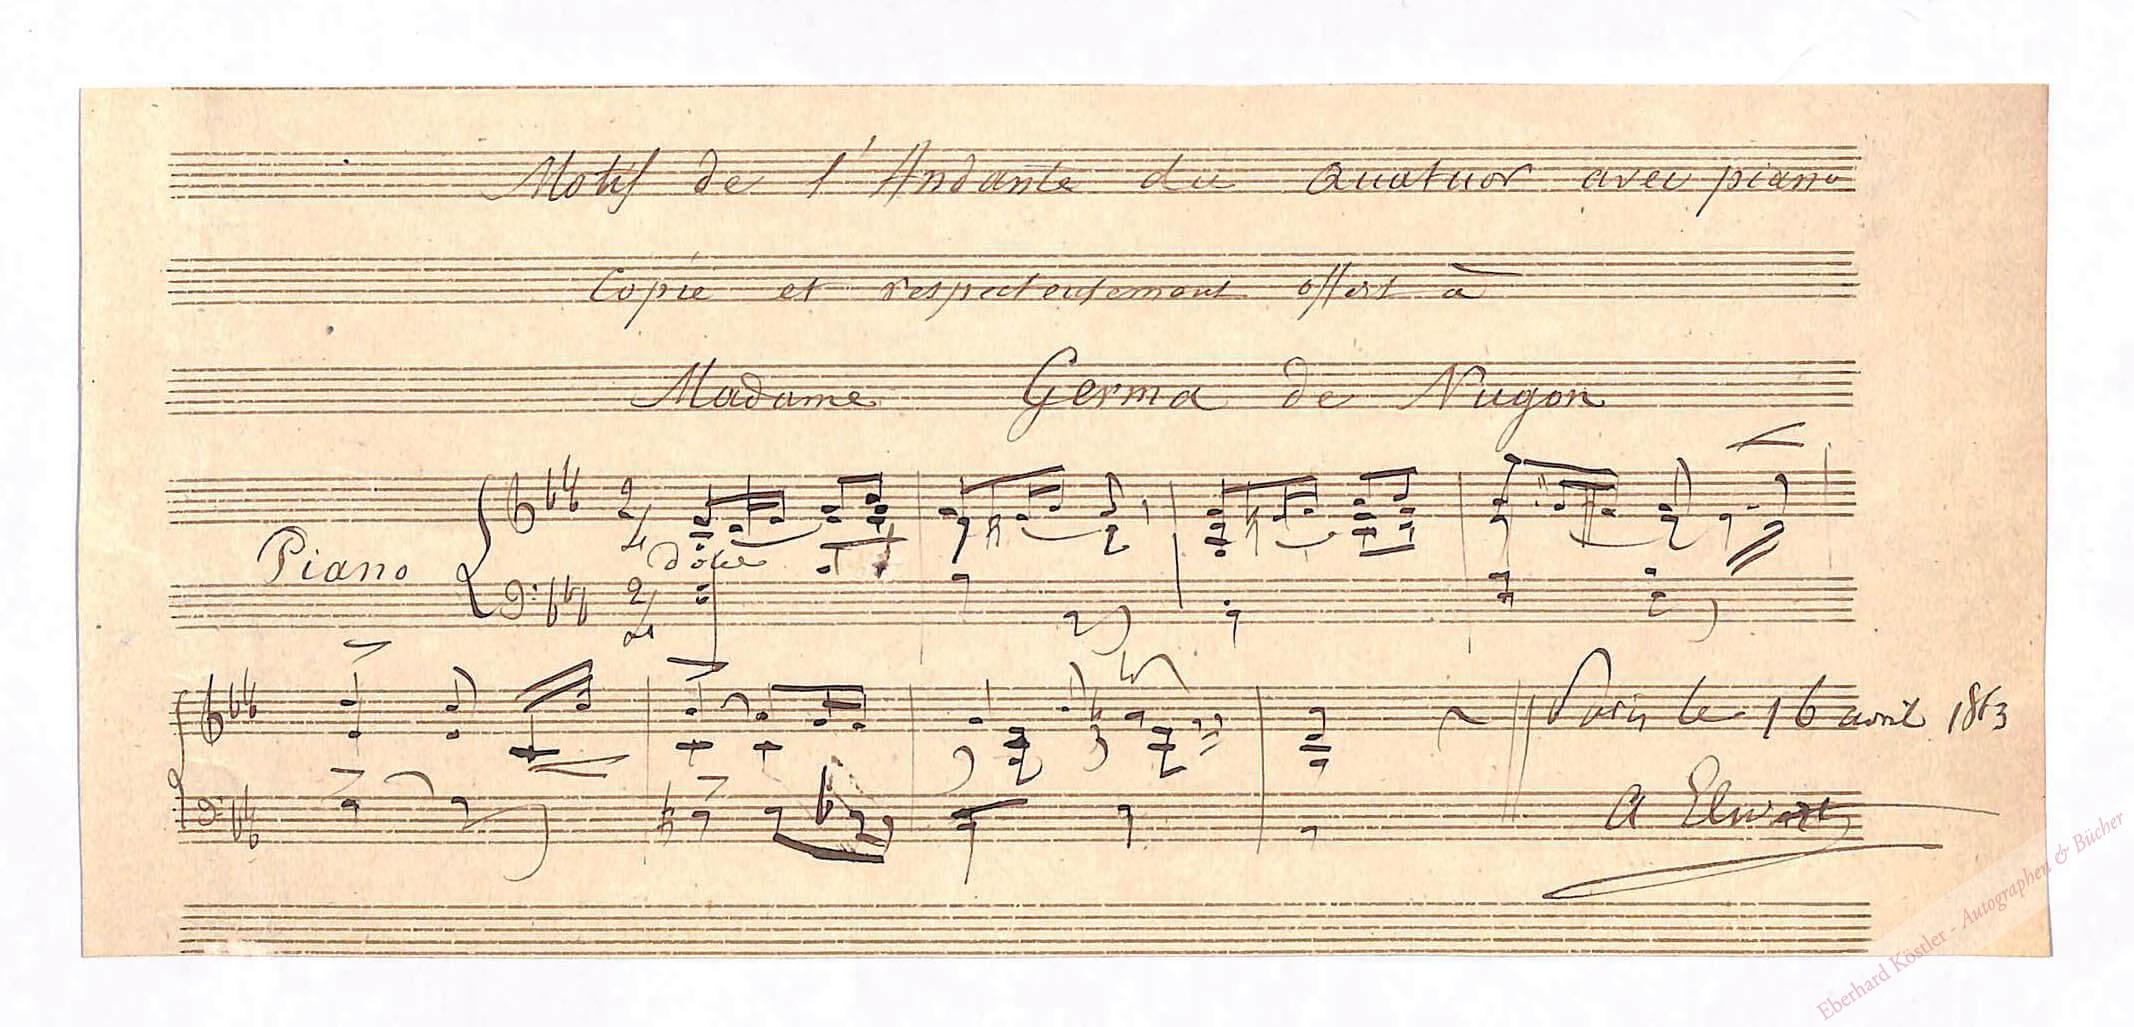 Motif de l'Andante du Quatuor avec piano
Copié et respectueusement offert à
Madame Germa de Nugon
Piano
2/4
doux
2/4
Paris le 16 avril 1863
A Elwart
Eberhard Köstler - Autographen & Bücher